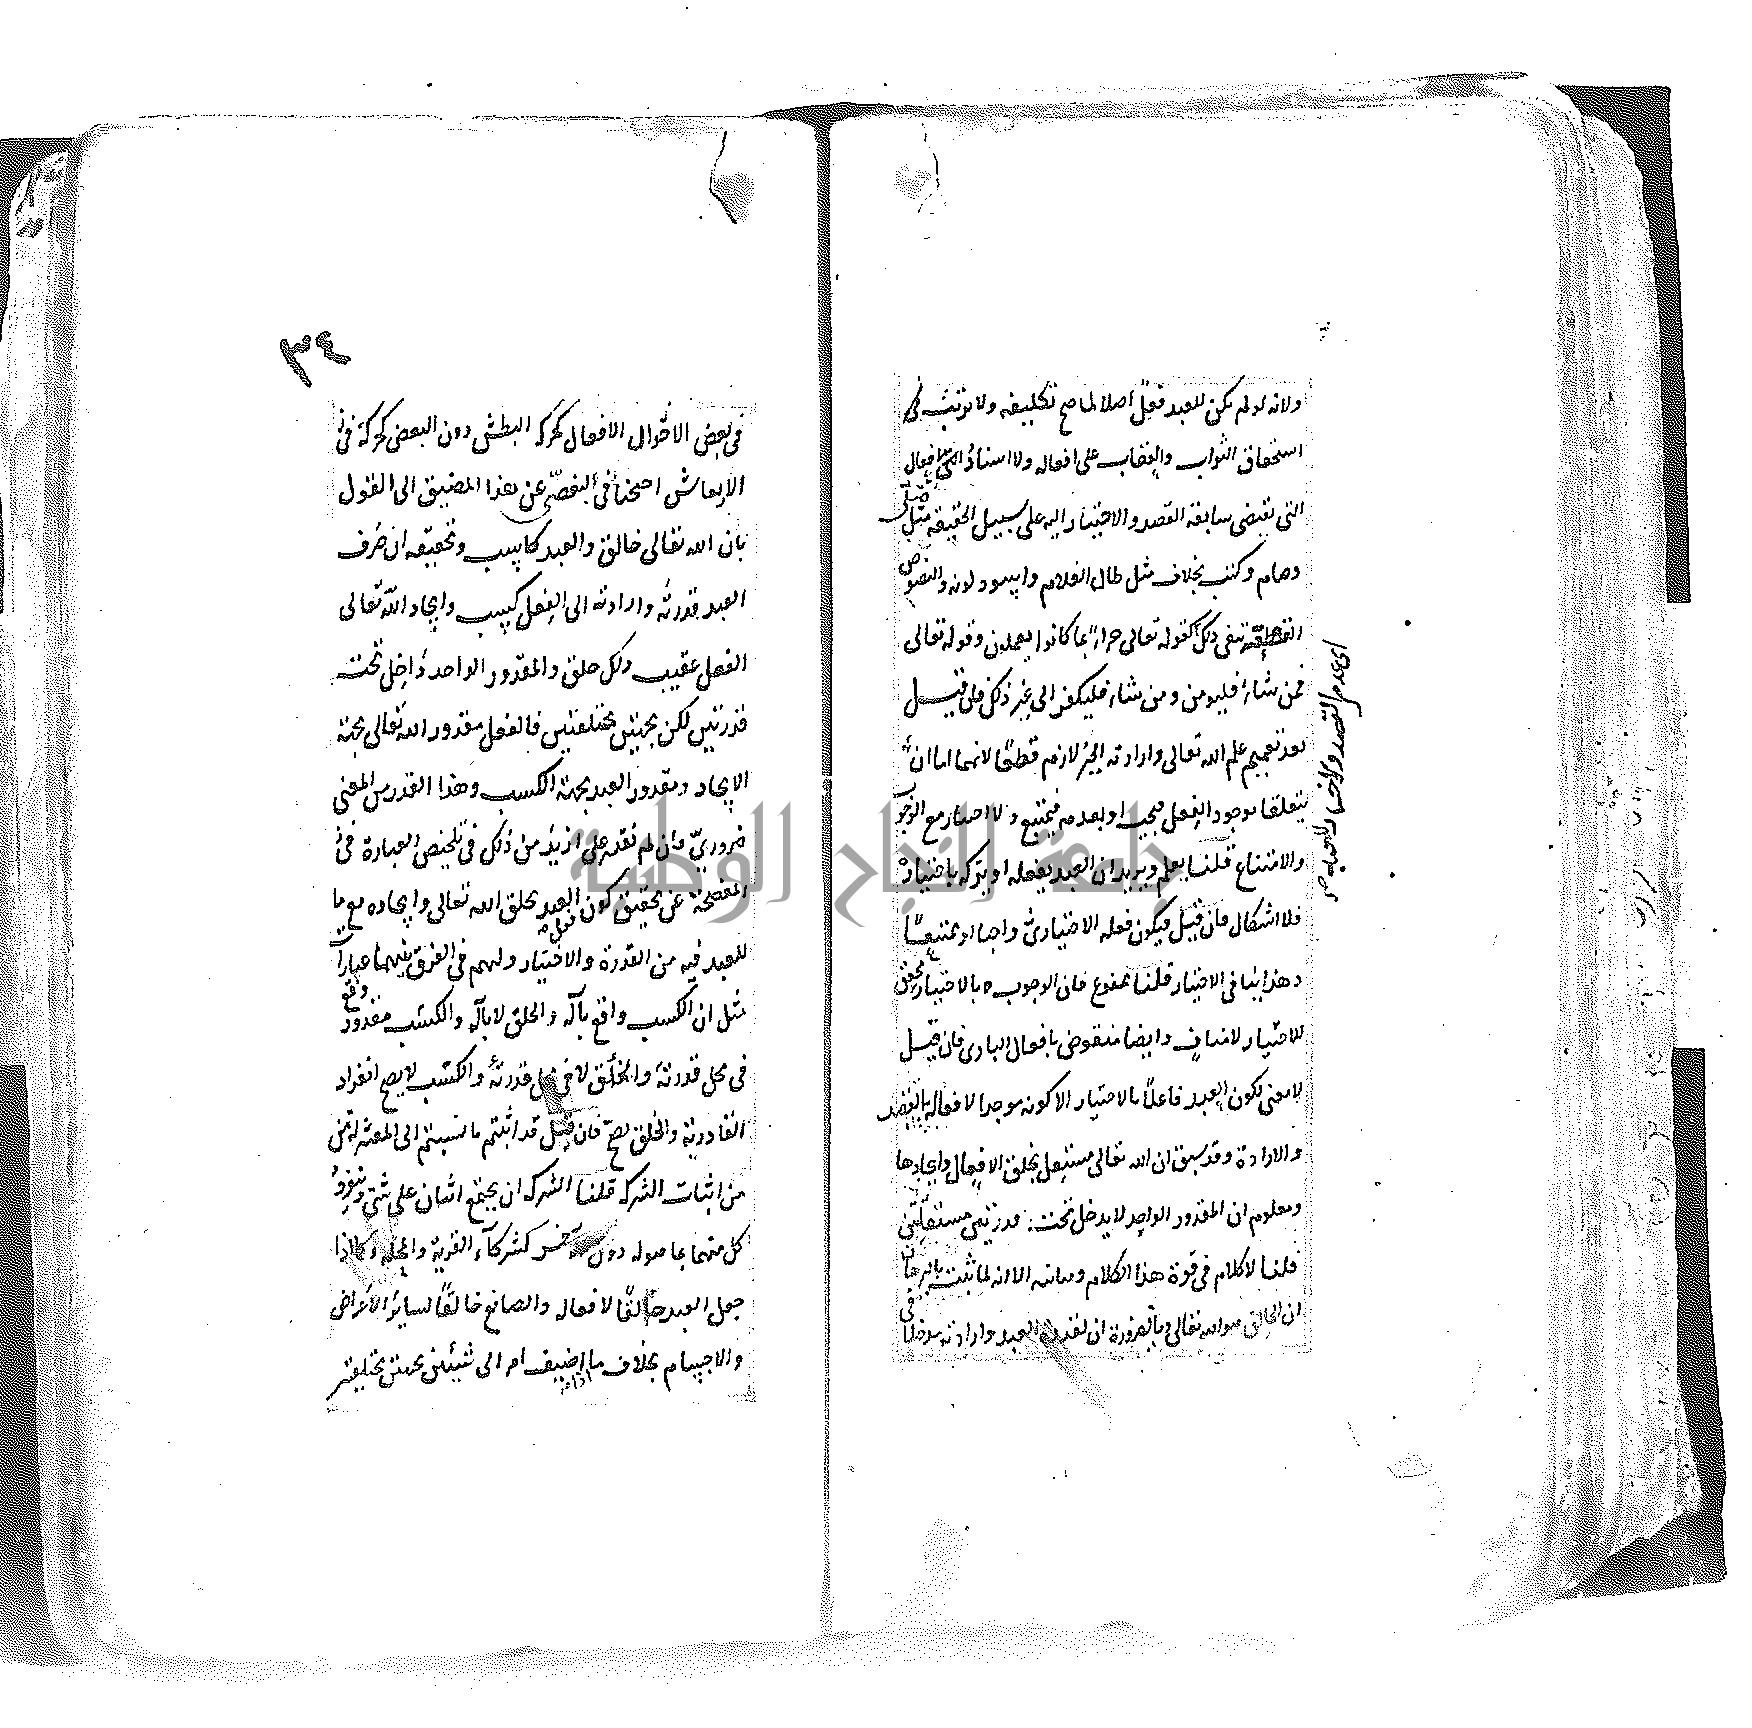 ولانه لو لم يكن للعبد فعل اصلا لما صح تكليفه ولا ترتب
استحقاق الثواب والعقاب على افعاله ولا اسناد الافعال
التى تقتضى سابقة القصد والاختيار اليه على سبيل الحقيقة مثل صلى
وصام وكتب بخلاف مثل طال الغلام واسود لونه والنصوص
القطعية تنفى ذلك كقوله تعالى جزاء بما كانوا يعملون وقوله تعالى
فمن شاء فليؤمن ومن شاء فليكفر الى غير ذلك فان قيل
بعد تعميم علم الله تعالى وارادته الجبر لازم قطعًا لانهما اما ان
يتعلقا بوجود الفعل فيجب او بعدمه فيمتنع ولا اختيار مع الوجوب
والامتناع قلنا يعلم ويريد ان العبد يفعله او يتركه باختياره
فلا اشكال فان قيل فيكون فعله الاختيارى واجبا او ممتنعًا
وهذا ينافى الاختيار قلنا ممنوع فان الوجوب بالاختيار محقق
للاختيار لا مناف وايضا منقوض بافعال البارى فان قيل
لا معنى لكون العبد فاعلاً بالاختيار الا كونه موجدا لافعاله بالقصد
والارادة وقد سبق ان الله تعالى مستقل بخلق الافعال وايجادها
ومعلوم ان المقدور الواحد لا يدخل تحت قدرتين مستقلتين
قلنا لا كلام فى قوة هذا الكلام ومتانته الا انه لما ثبت بالبرهان
ان الخالق هو الله تعالى وبالضرورة ان لقدرة العبد وارادته مدخلا فى
اى عدم القصد والاختيار
٣٤
فى بعض الاحوال الافعال كحركة البطش دون البعض كحركة
الارتعاش احتجنا فى التفصى عن هذا المضيق الى القول
بان الله تعالى خالق والعبد كاسب وتحقيقه ان صرف
العبد قدرته وارادته الى الفعل كسب وايجاد الله تعالى
الفعل عقيب ذلك خلق والمقدور الواحد داخل تحت
قدرتين لكن بجهتين مختلفتين فالفعل مقدور الله تعالى بجهة
الايجاد ومقدور العبد بجهة الكسب وهذا القدر من المعنى
ضرورى وان لم نقدر على ازيد من ذلك فى تلخيص العبارة
المفصحة عن تحقيق كون فعل العبد بخلق الله تعالى وايجاده مع ما
للعبد فيه من القدرة والاختيار ولهم فى الفرق بينهما عبارات
مثل ان الكسب واقع بآلة والخلق لا بآلة والكسب مقدور وقع
فى محل قدرته والخلق لا فى محل قدرته والكسب لا يصح انفراد
القادر به والخلق يصح فان قيل قد اثبتم ما نسبتم الى المعتزلة
من اثبات الشركة قلنا الشركة ان يجتمع اثنان على شئ وينفرد
كل منهما بما هو له دون الآخر كشركاء القرية والمحلة وكما اذا
جعل العبد خالقًا لافعاله والصانع خالقًا لسائر الاعراض
والاجسام بخلاف ما اذا اضيف امر الى شيئين بجهتين مختلفتين
جامعة النجاح الوطنية